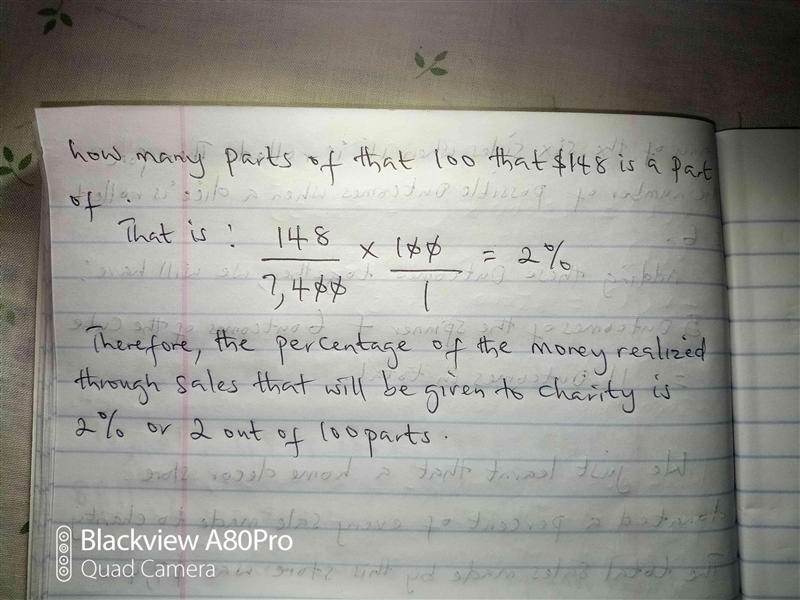 how many parts of that 100 that $148 is a part
of .
That is : 148/7,400 x 100/1 = 2%
Therefore, the percentage of the money realized
through sales that will be given to charity is
2% or 2 out of 100 parts.
Blackview A80Pro
Quad Camera